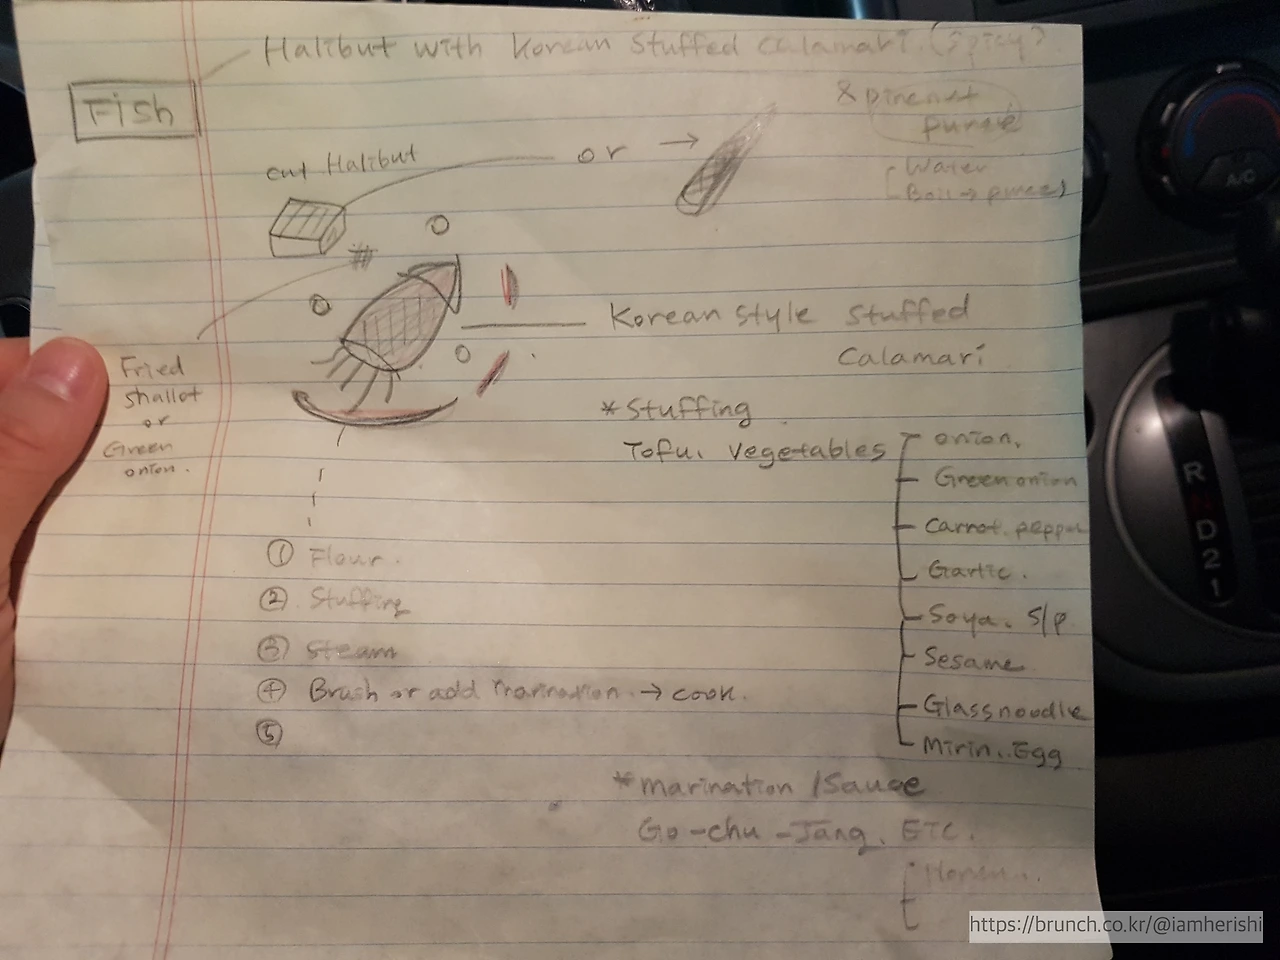 Halibut with Korean Stuffed Calamari. (Spicy)
Fish
& pinenut
pureé
cut Halibut
or →
Water
Boil → pureé
Korean style Stuffed
Calamari
Fried
shallot
or
Green
onion.
* Stuffing
Tofu, vegetables
onion,
Green onion
Carrot. pepper
Garlic.
Soya. S/P
Sesame
Glass noodle
Mirin. Egg
① Flour.
② Stuffing
③ Steam
④ Brush or add marination. → cook.
⑤
* marination / Sauce
Go-chu-Jang. ETC.
https://brunch.co.kr/@iamherishi
R
D
2
1
A/C